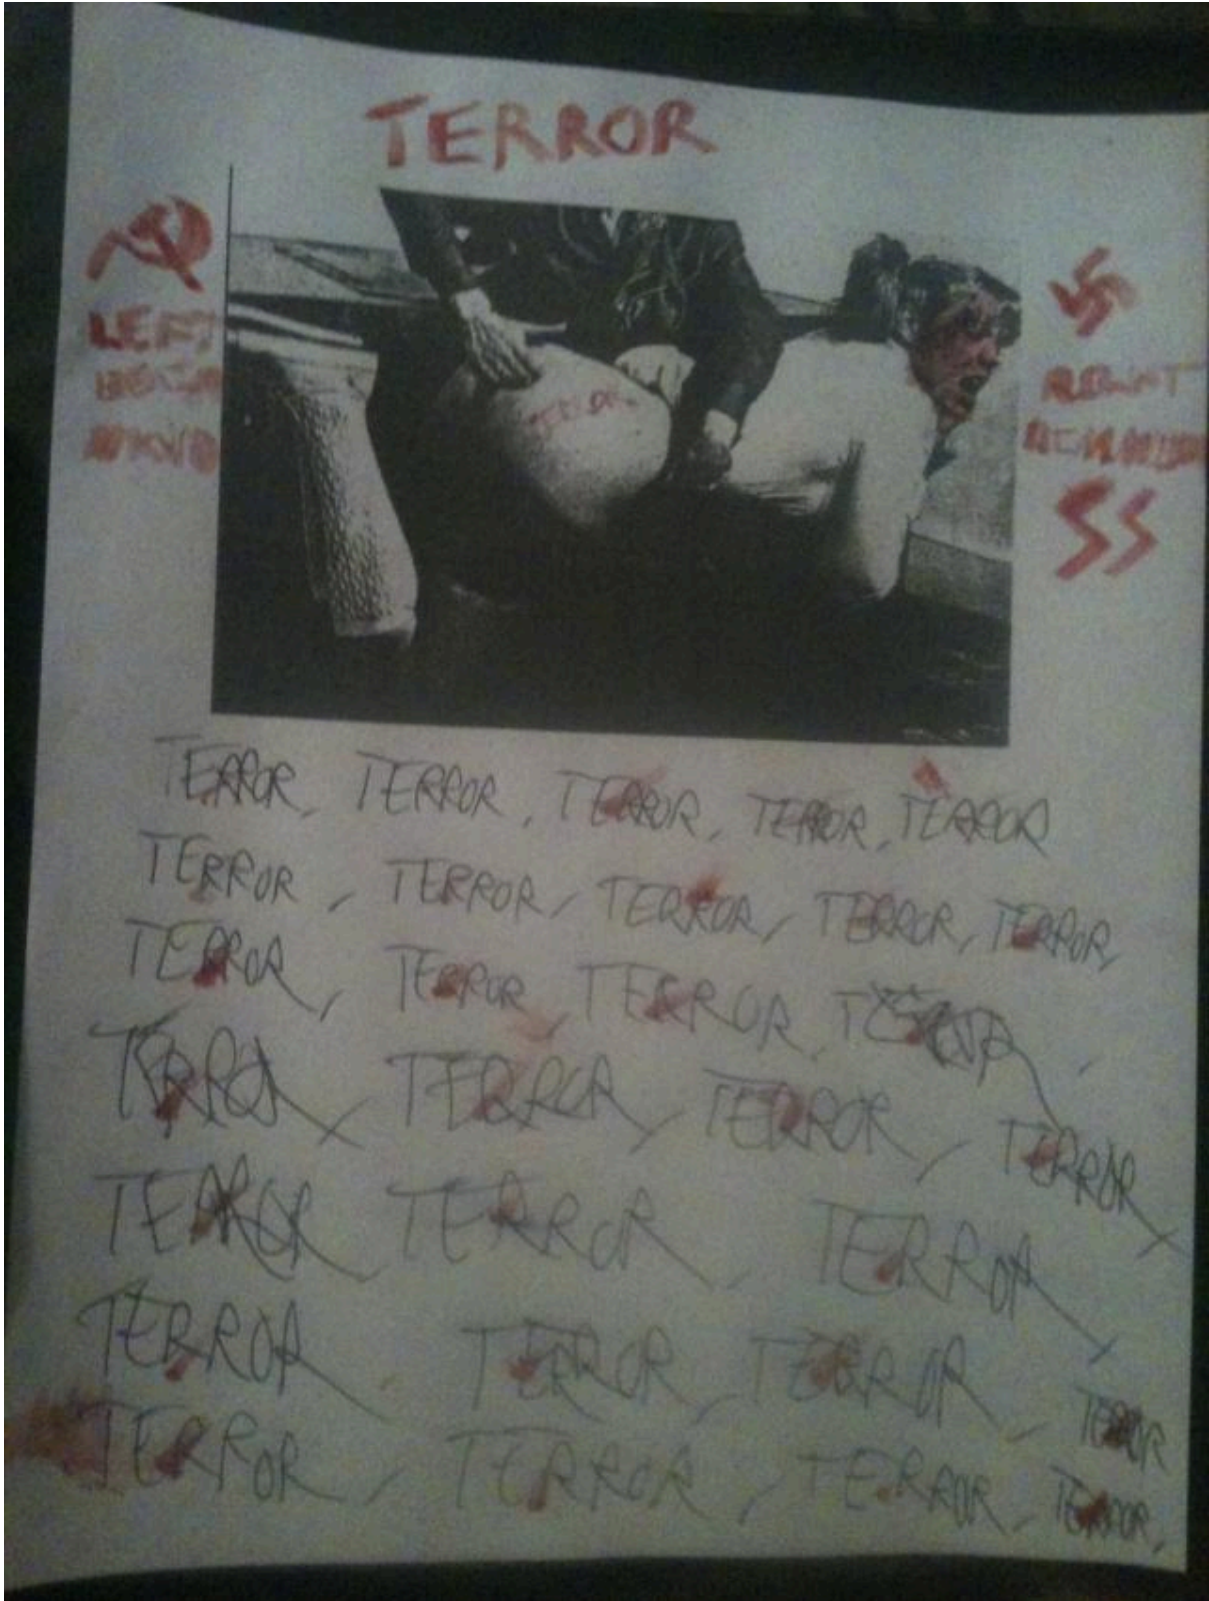 TERROR
LEFT
TERROR
SS
TERROR, TERROR, TERROR, TERROR, TERROR
TERROR, TERROR, TERROR, TERROR, TERROR,
TERROR, TERROR, TERROR, TERROR,
TERROR, TERROR, TERROR, TERROR
TERROR, TERROR, TERROR
TERROR, TERROR, TERROR, TERROR
TERROR, TERROR, TERROR, TERROR,